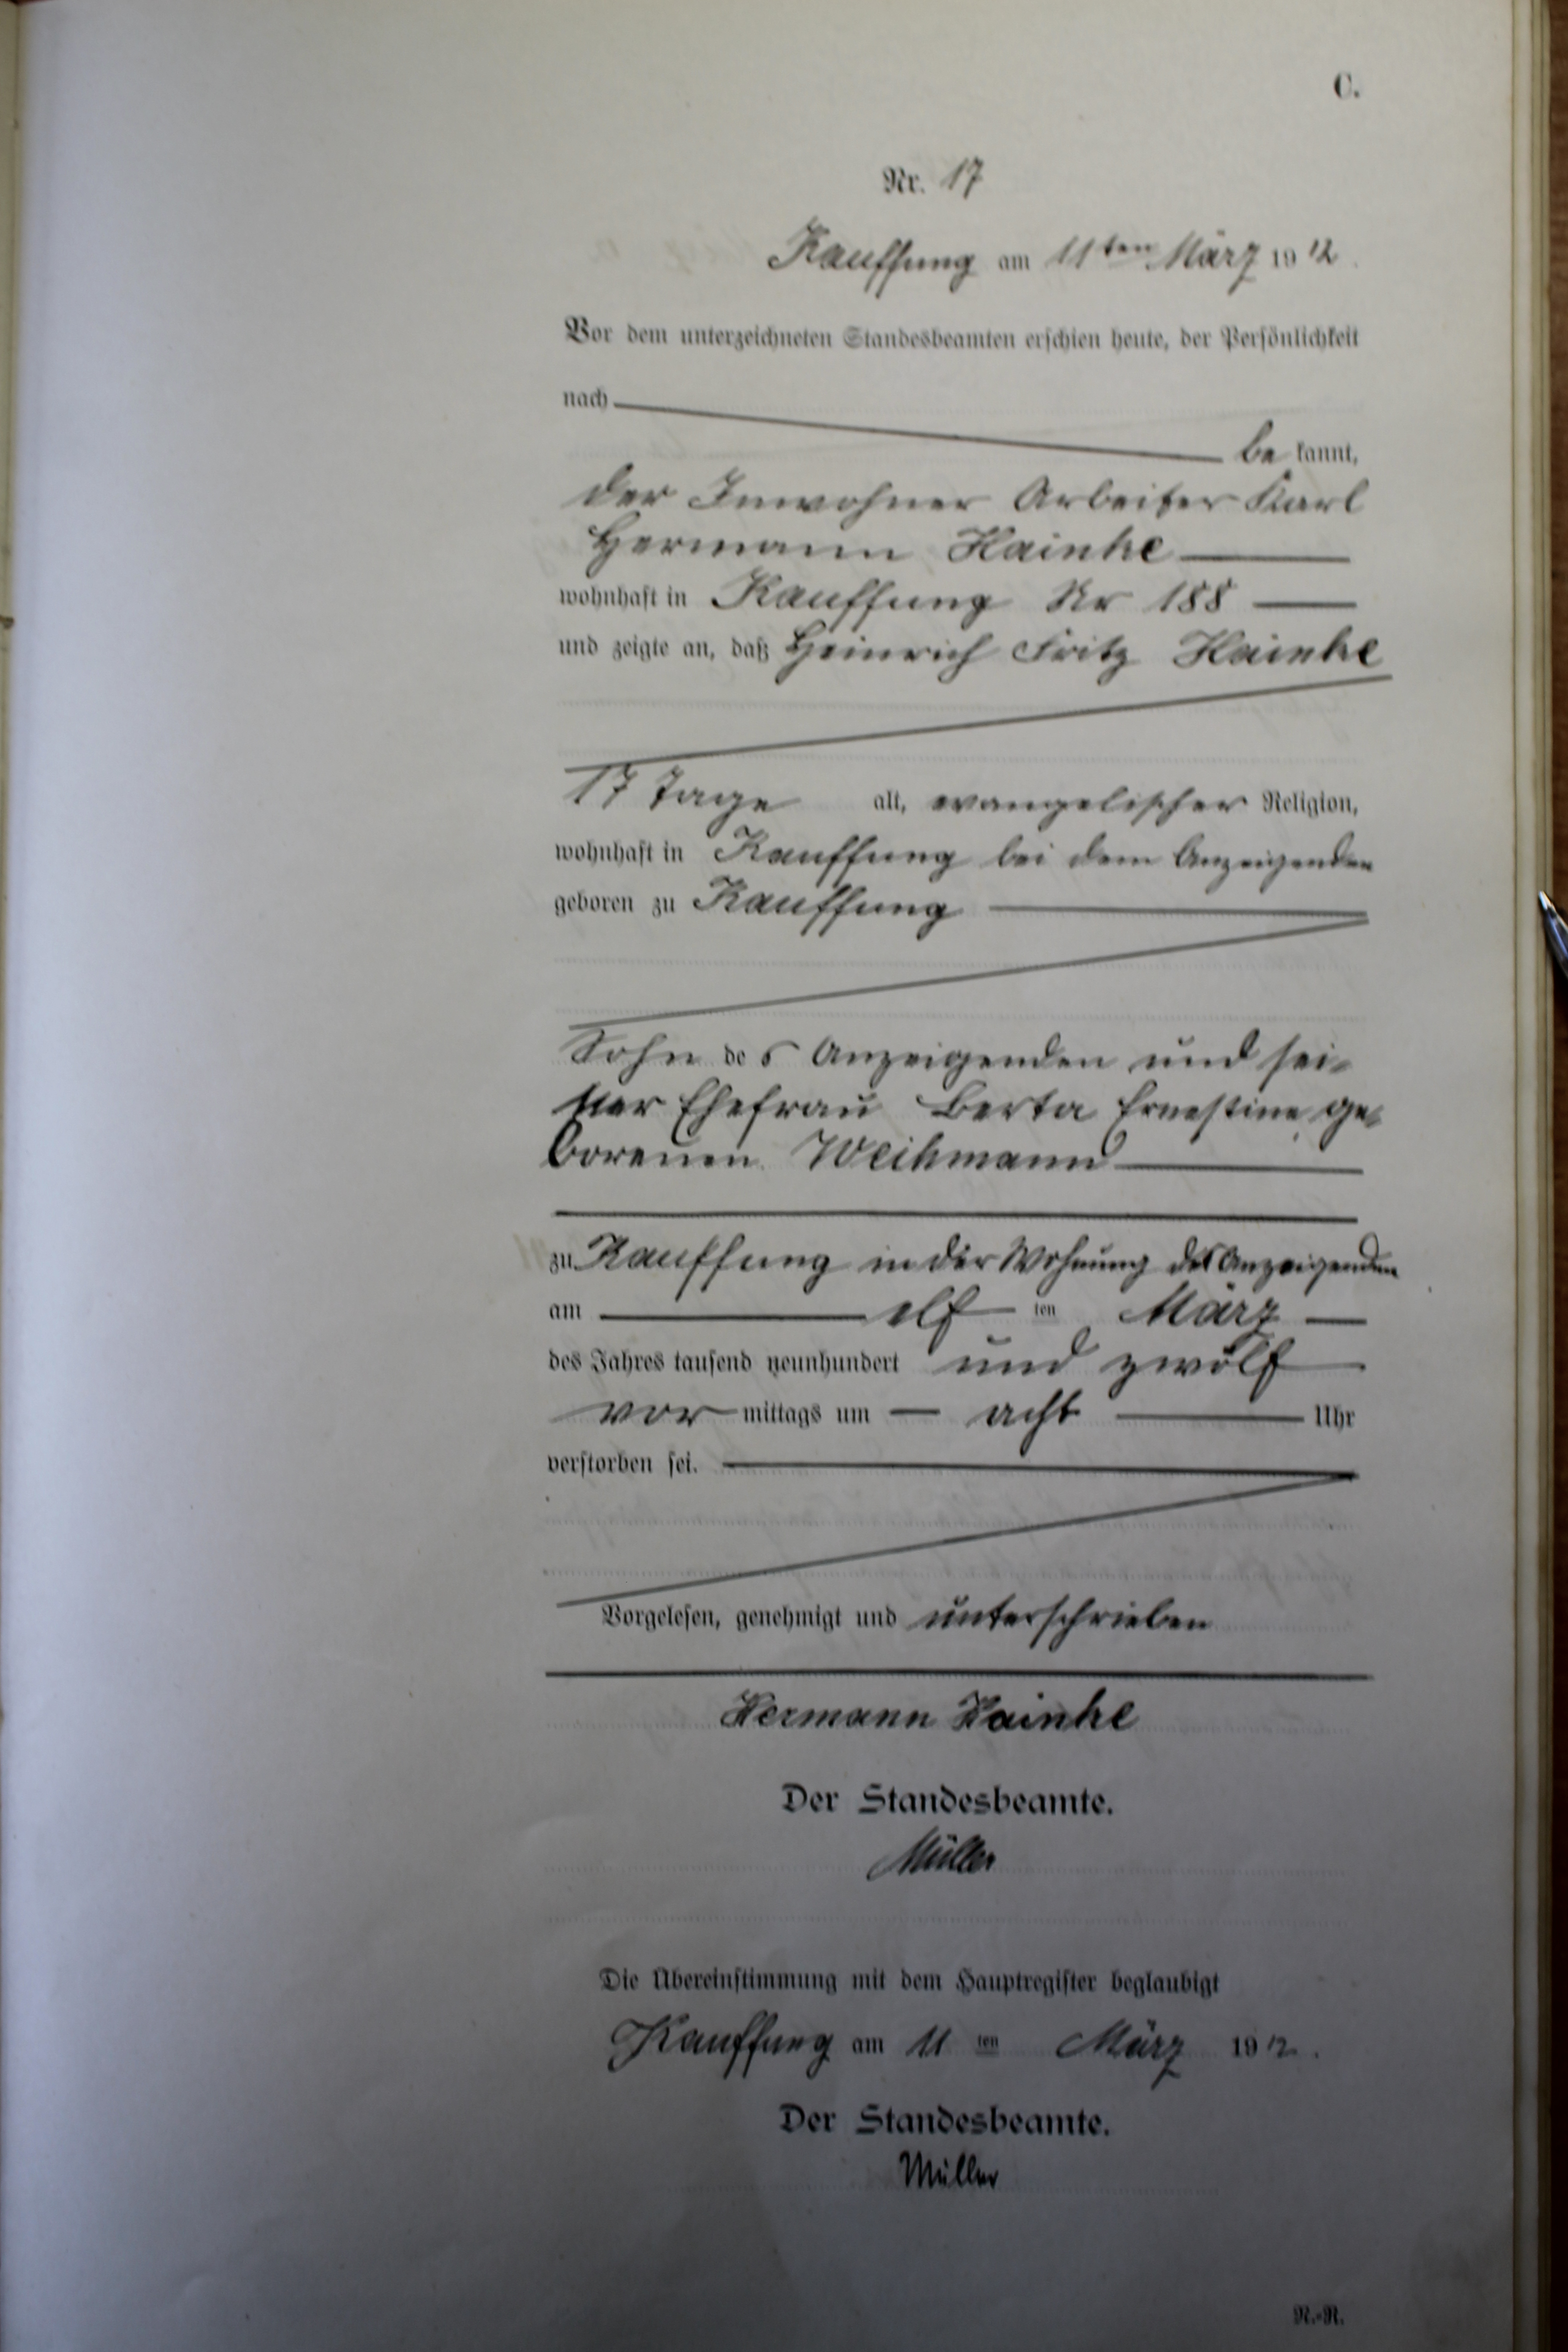 C.
Nr. 17
Kauffung am 11ten März 1912
Vor dem unterzeichneten Standesbeamten erschien heute, der Persönlichkeit
nach
be kannt,
der Inwohner Arbeiter Karl
Hermann Hainke
wohnhaft in Kauffung Nr 188
und zeigte an, daß Heinrich Fritz Hainke
17 Tage alt, evangelischer Religion,
wohnhaft in Kauffung bei dem Anzeigenden
geboren zu Kauffung
Sohn des Anzeigenden und sei-
ner Ehefrau Berta Ernestine ge-
borenen Weihmann
zu Kauffung in der Wohnung des Anzeigenden
am elf ten März
des Jahres tausend neunhundert und zwölf
vor mittags um acht Uhr
verstorben sei.
Vorgelesen, genehmigt und unterschrieben
Hermann Hainke
Der Standesbeamte.
Müller
Die Übereinstimmung mit dem Hauptregister beglaubigt
Kauffung am 11 ten März 1912.
Der Standesbeamte.
Müller
R.-R.